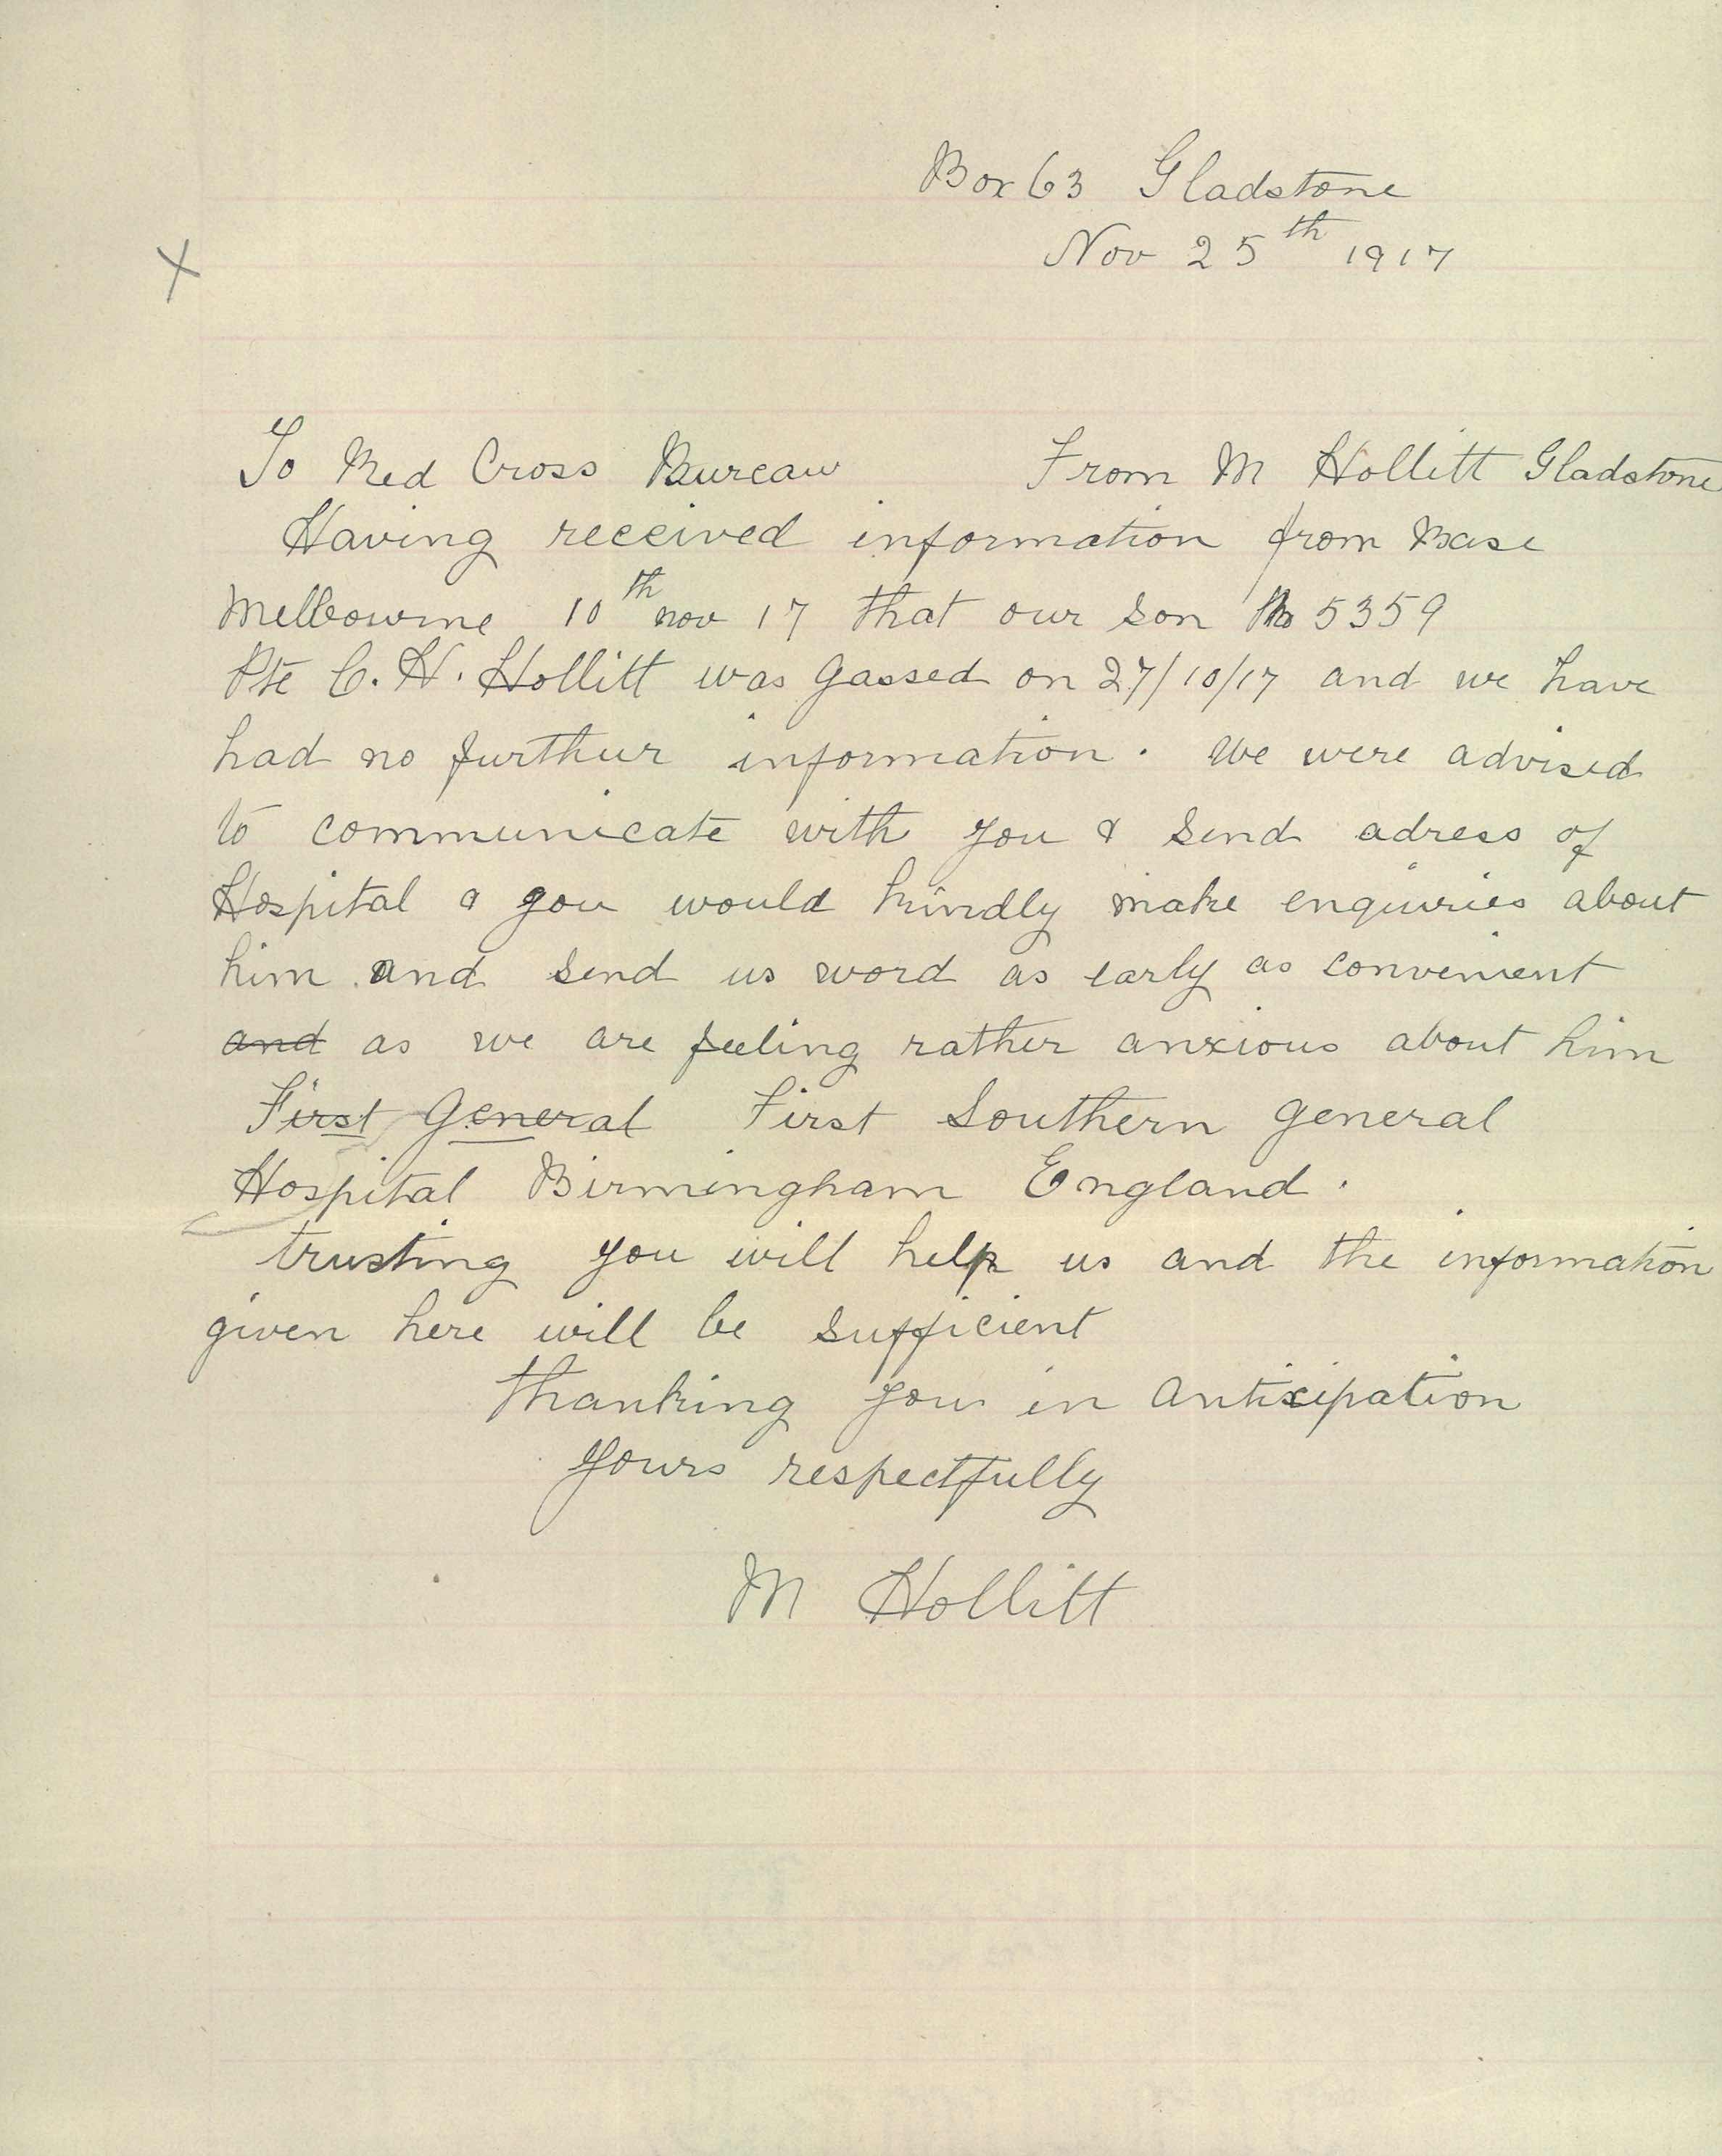 Box 63 Gladstone
Nov 25th 1917
X
To Red Cross Bureau From M Hollitt Gladstone
Having received information from Base
Melbourne 10th nov 17 that our son No 5359
Pte C. H. Hollitt was gassed on 27/10/17 and we have
had no furthur information. We were advised
to communicate with you & send adress of
Hospital & you would kindly make enquiries about
him and send us word as early as convenient
and as we are feeling rather anxious about him
First General First Southern general
Hospital Birmingham England.
trusting you will help us and the information
given here will be sufficient
Thanking you in anticipation
Yours respectfully
M Hollitt